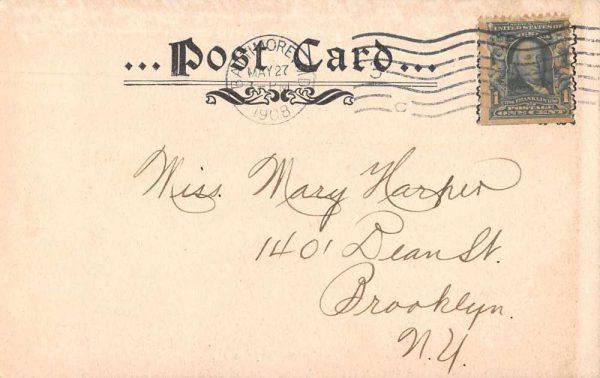 ...Post Card...
BALTIMORE, MD.
MAY 27
1908
UNITED STATES OF
FRANKLIN
1 POSTAGE 1
ONE CENT
Miss. Mary Harper
140' Dean St.
Brooklyn.
N.Y.